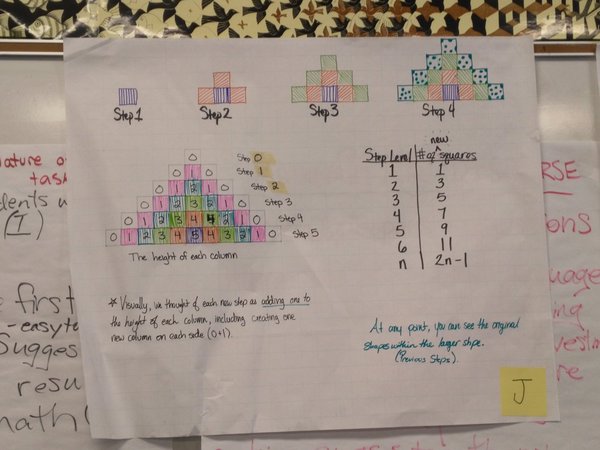 Step 1
Step 2
Step 3
Step 4
0 Step 0
0 1 0 Step 1
0 1 2 1 0 Step 2
0 1 2 3 2 1 0 Step 3
0 1 2 3 4 4 2 1 0 Step 4
0 1 2 3 4 5 4 3 2 1 0 Step 5
The height of each column
* Visually, we thought of each new step as adding one to
the height of each column, including creating one
new column on each side (0+1).
new
Step Level # of squares
1 1
2 3
3 5
4 7
5 9
6 11
n 2n-1
At any point, you can see the original
shapes within the larger shape.
(Previous Steps).
J
ature o
task
dents w
(I)
first
-easy to
Sugges
resu
math(
RSE
ions
uage
ing
vestm
re